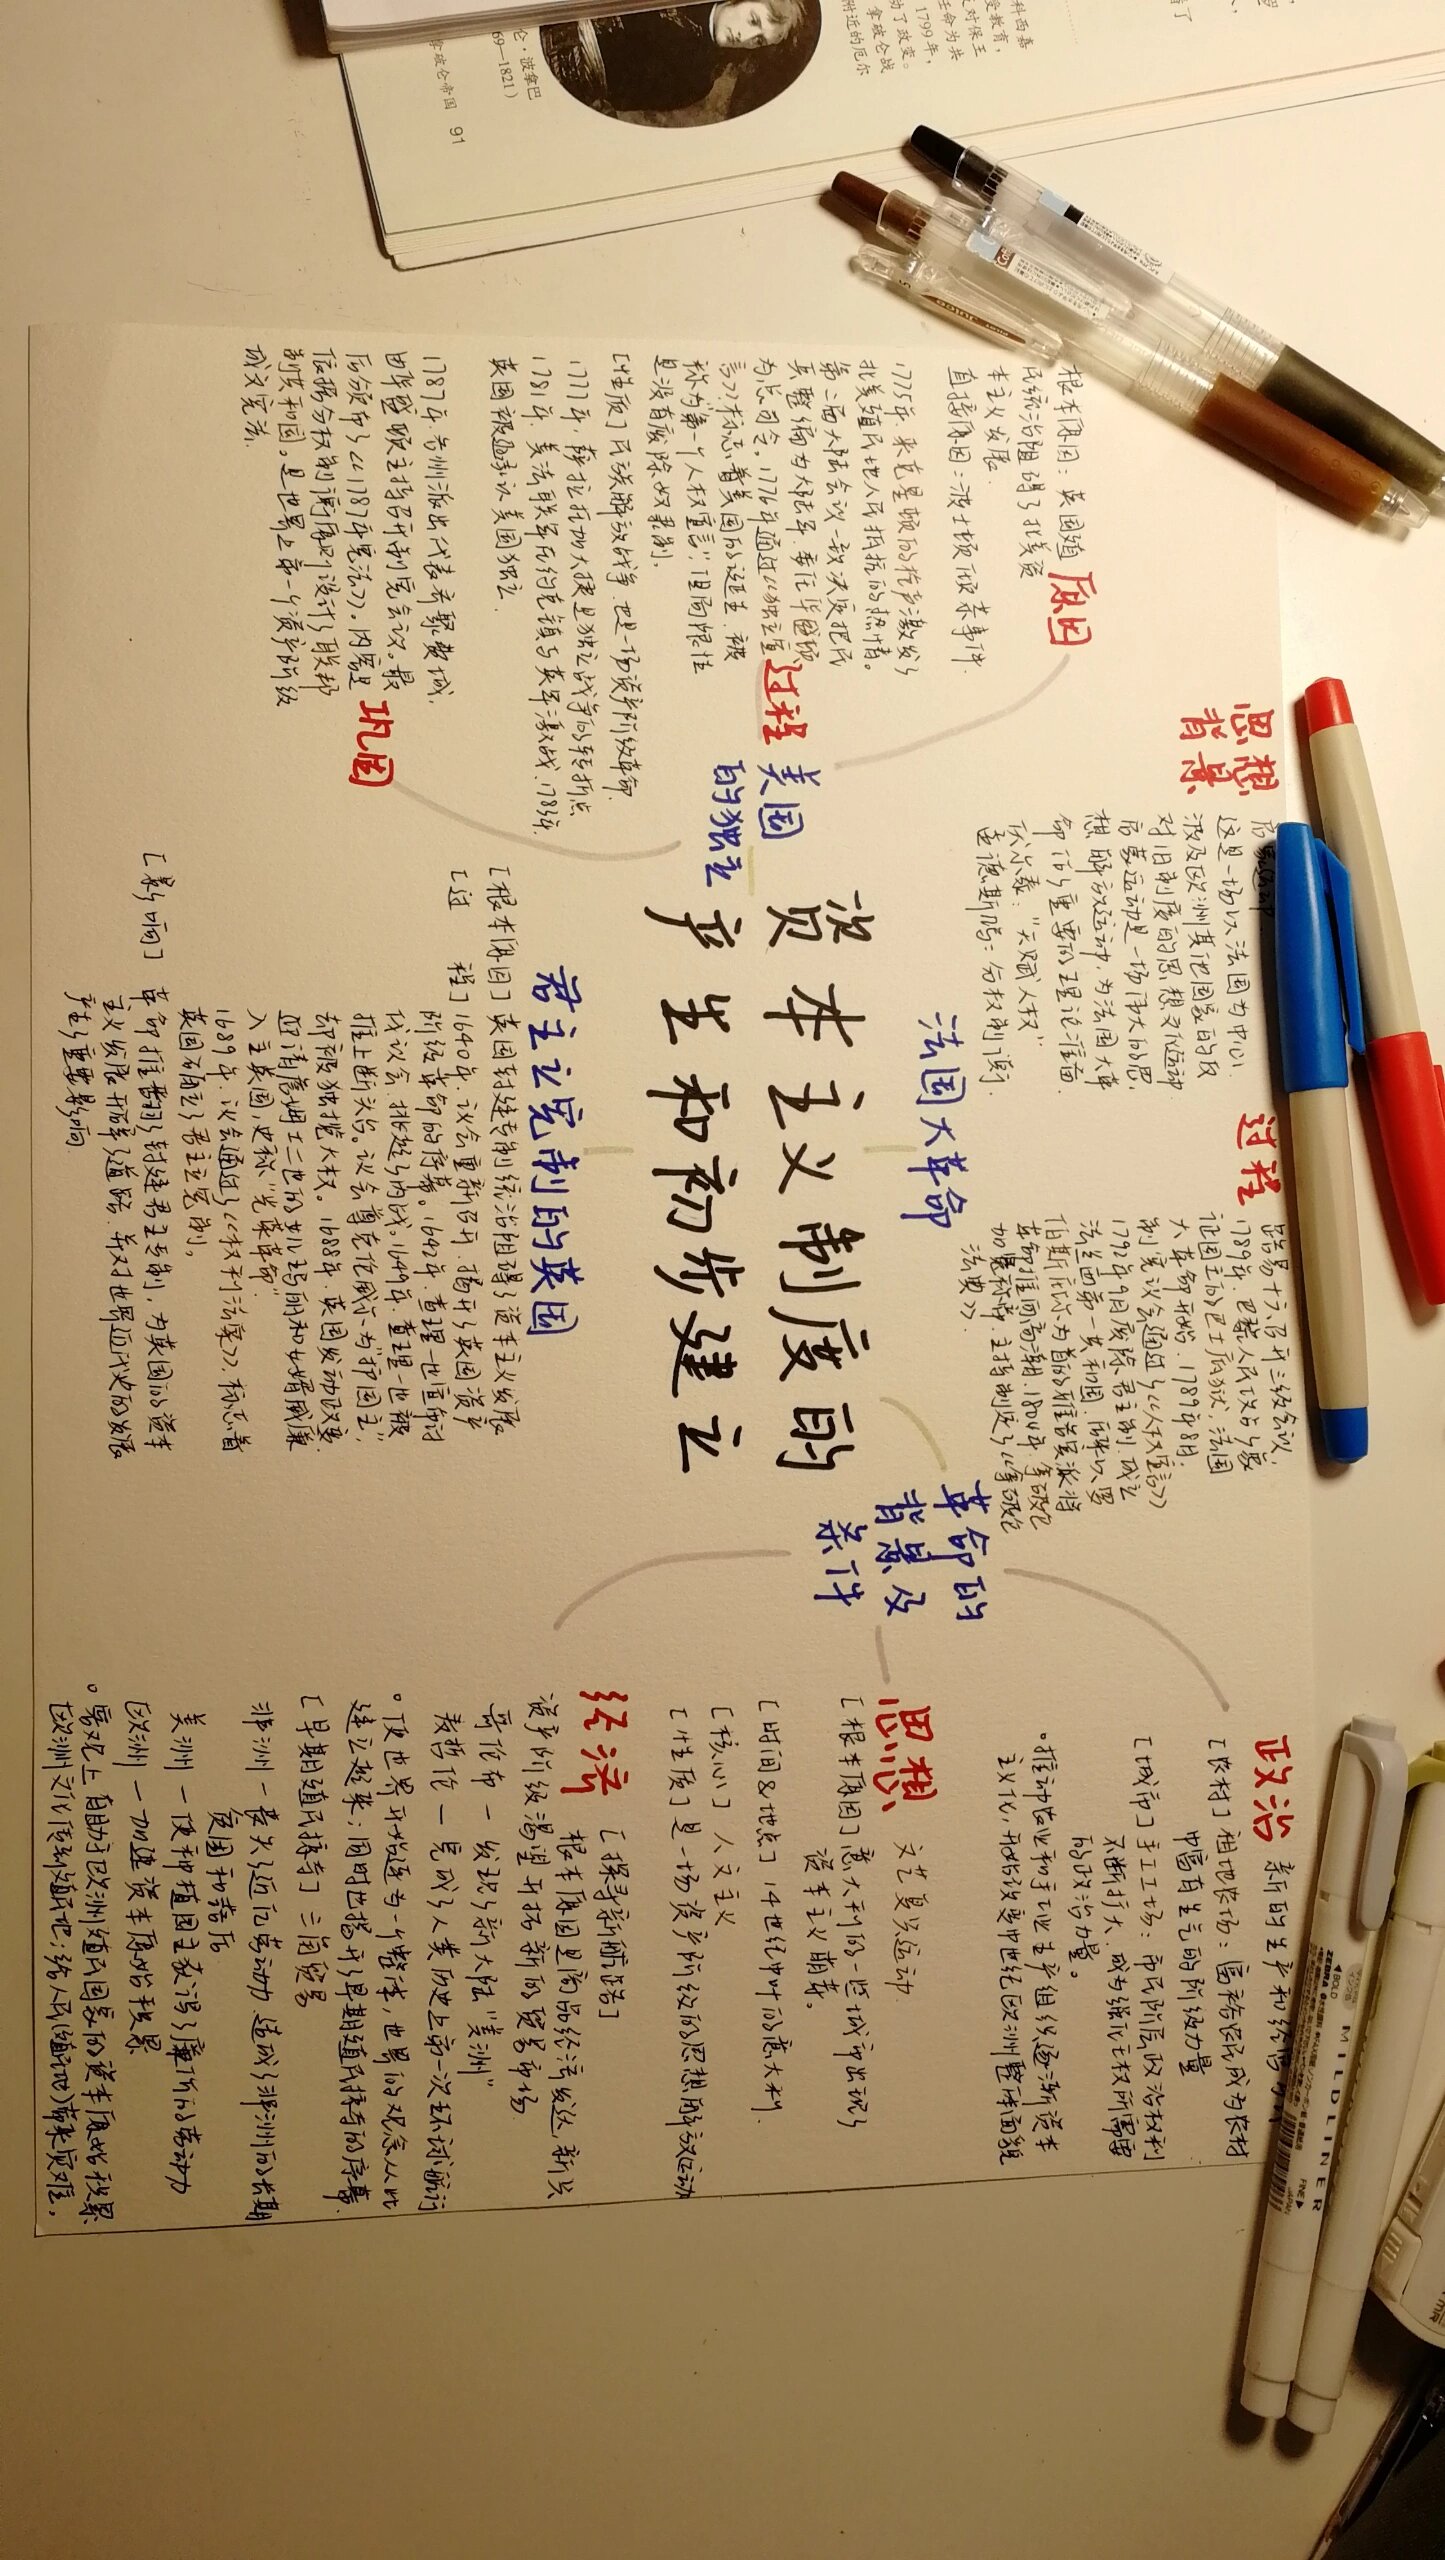 资本主义制度的
产生和初步建立
革命的
背景及
条件
政治
新的生产和经营方式
[农村] 租地农场：富裕农民成为农村
中富有生气的阶级力量
[城市] 手工工场：市民阶层政治权利
不断扩大，成为强化王权所需要
的政治力量。
·推动农业和手工业生产组织逐渐资本
主义化，开始改变中世纪欧洲整体面貌
思想
文艺复兴运动
[根本原因] 意大利的一些城市出现了
资本主义萌芽。
[时间&地点] 14世纪中叶的意大利
[核心] 人文主义
[性质] 是一场资产阶级的思想解放运动
经济
[探寻新航路]
根本原因是商品经济发达，新兴
资产阶级渴望开拓新的贸易市场
哥伦布—发现了新大陆“美洲”
麦哲伦—完成了人类历史上第一次环球航行
·使世界开始连为一个整体，世界的观念从此
建立起来；同时也揭开了早期殖民掠夺的序幕
[早期殖民掠夺] 三角贸易
非洲—丧失了近亿劳动力，造成了非洲的长期
贫困和落后
美洲—使种植园主获得了廉价的劳动力
欧洲—加速资本原始积累
·客观上有助于欧洲殖民国家的资本原始积累
欧洲文化传到殖民地；给人民(殖民地)带来灾难。
法国大革命
思想
背景
启蒙运动
这是一场以法国为中心，
波及欧洲其他国家的反
对旧制度的思想文化运动
启蒙运动是一场伟大的思
想解放运动，为法国大革
命作了重要的理论准备
伏尔泰：“天赋人权”
孟德斯鸠：分权制衡
过程
路易十六召开三级会议，
1789年，巴黎人民攻占了象
征国王的巴士底狱，法国
大革命开始，1789年8月，
制宪议会通过了《人权宣言》
1792年9月废除君主制，成立
法兰西第一共和国，后来以罗
伯斯庇尔为首的雅各宾派将
革命推向高潮，1804年，拿破仑
加冕称帝，主持制定了《拿破仑
法典》
美国
的独立
原因
根本原因：英国殖
民统治阻碍了北美资
本主义发展
直接原因：波士顿倾茶事件
过程
1775年，来克星顿的枪声激发了
北美殖民地人民抵抗的热情。
第二届大陆会议一致决定把民
兵整编为大陆军，委任华盛顿
为总司令。1776年通过《独立宣
言》标志着美国的诞生，被
称为“第一个人权宣言”，但局限性
是没有废除奴隶制。
[性质] 民族解放战争，也是一场资产阶级革命
1777年，萨拉托加大捷是独立战争的转折点
1781年，美法联军在约克镇与英军激战，1783年，
英国被迫承认美国独立
巩固
1787年，各州派出代表齐聚费城，
由华盛顿主持召开制宪会议。最
后颁布了《1787年宪法》。内容是
依据分权制衡原则设计了联邦
制共和国。是世界上第一个资产阶级
成文宪法
君主立宪制的英国
[根本原因] 英国封建专制统治阻碍了资本主义发展
[过　程] 1640年，议会重新召开，揭开了英国资产
阶级革命的序幕。1642年，查理一世宣布讨
伐议会，挑起了内战。1649年，查理一世被
推上断头台。议会尊克伦威尔为“护国主”，
却被独揽大权。1688年，英国发动政变，
迎请詹姆士二世的女儿玛丽和女婿威廉
入主英国，史称“光荣革命”
1689年，议会通过了《权利法案》，标志着
英国确立了君主立宪制。
[影响] 革命推翻了封建君主专制，为英国的资本
主义发展开辟了道路，并对世界近代史的发展
产生了重要影响
伦·波拿巴
69—1821）
拿破仑帝国 91
科西嘉
受教育，
反对保王
任命为共
动了政变。
1799年，
拿破仑战
附近的厄尔
ZEBRA
MILDLINER
BOLD
FINE
Juice